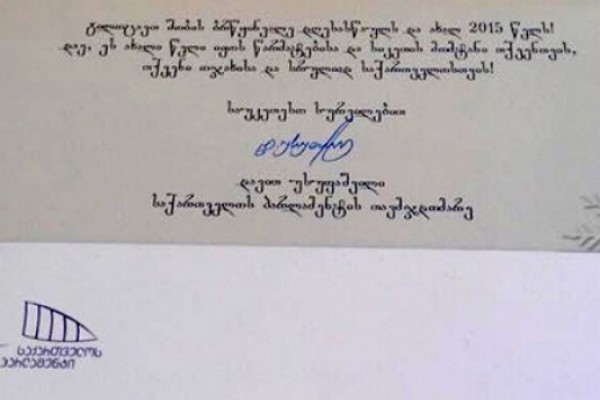 გილოცავთ შობის ბრწყინვალე დღესასწაულს და ახალ 2015 წელს!
დაე, ეს ახალი წელი იყოს წარმატებისა და სიკეთის მომტანი თქვენთვის,
თქვენი ოჯახისა და სრულიად საქართველოსთვის!
საუკეთესო სურვილებით
დავით უსუფაშვილი
საქართველოს პარლამენტის თავმჯდომარე
საქართველოს
პარლამენტი